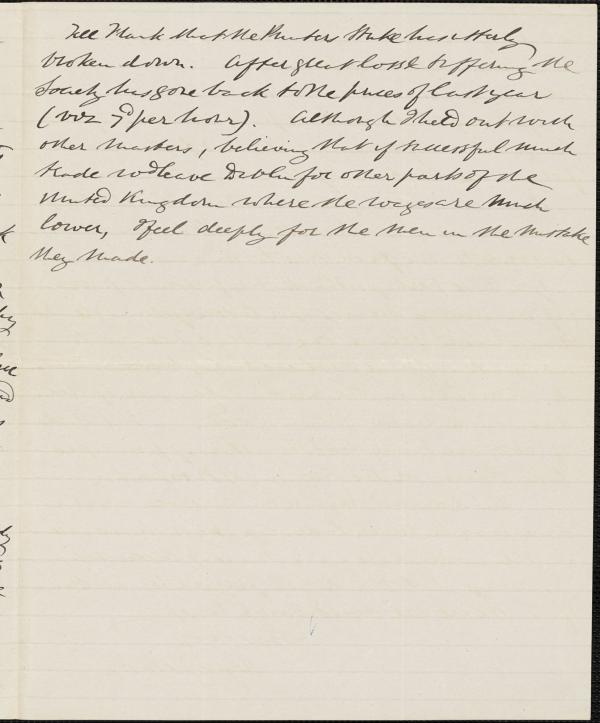 Tell Mark that the Printers Strike has utterly
broken down. After great loss & suffering the
Society has gone back to the prices of last year
(viz 7d per hour). Although I held out with
other masters, believing that if successful much
trade wd leave Dublin for other parts of the
United Kingdom where the wages are much
lower, I feel deeply for the men in the mistake
they made.